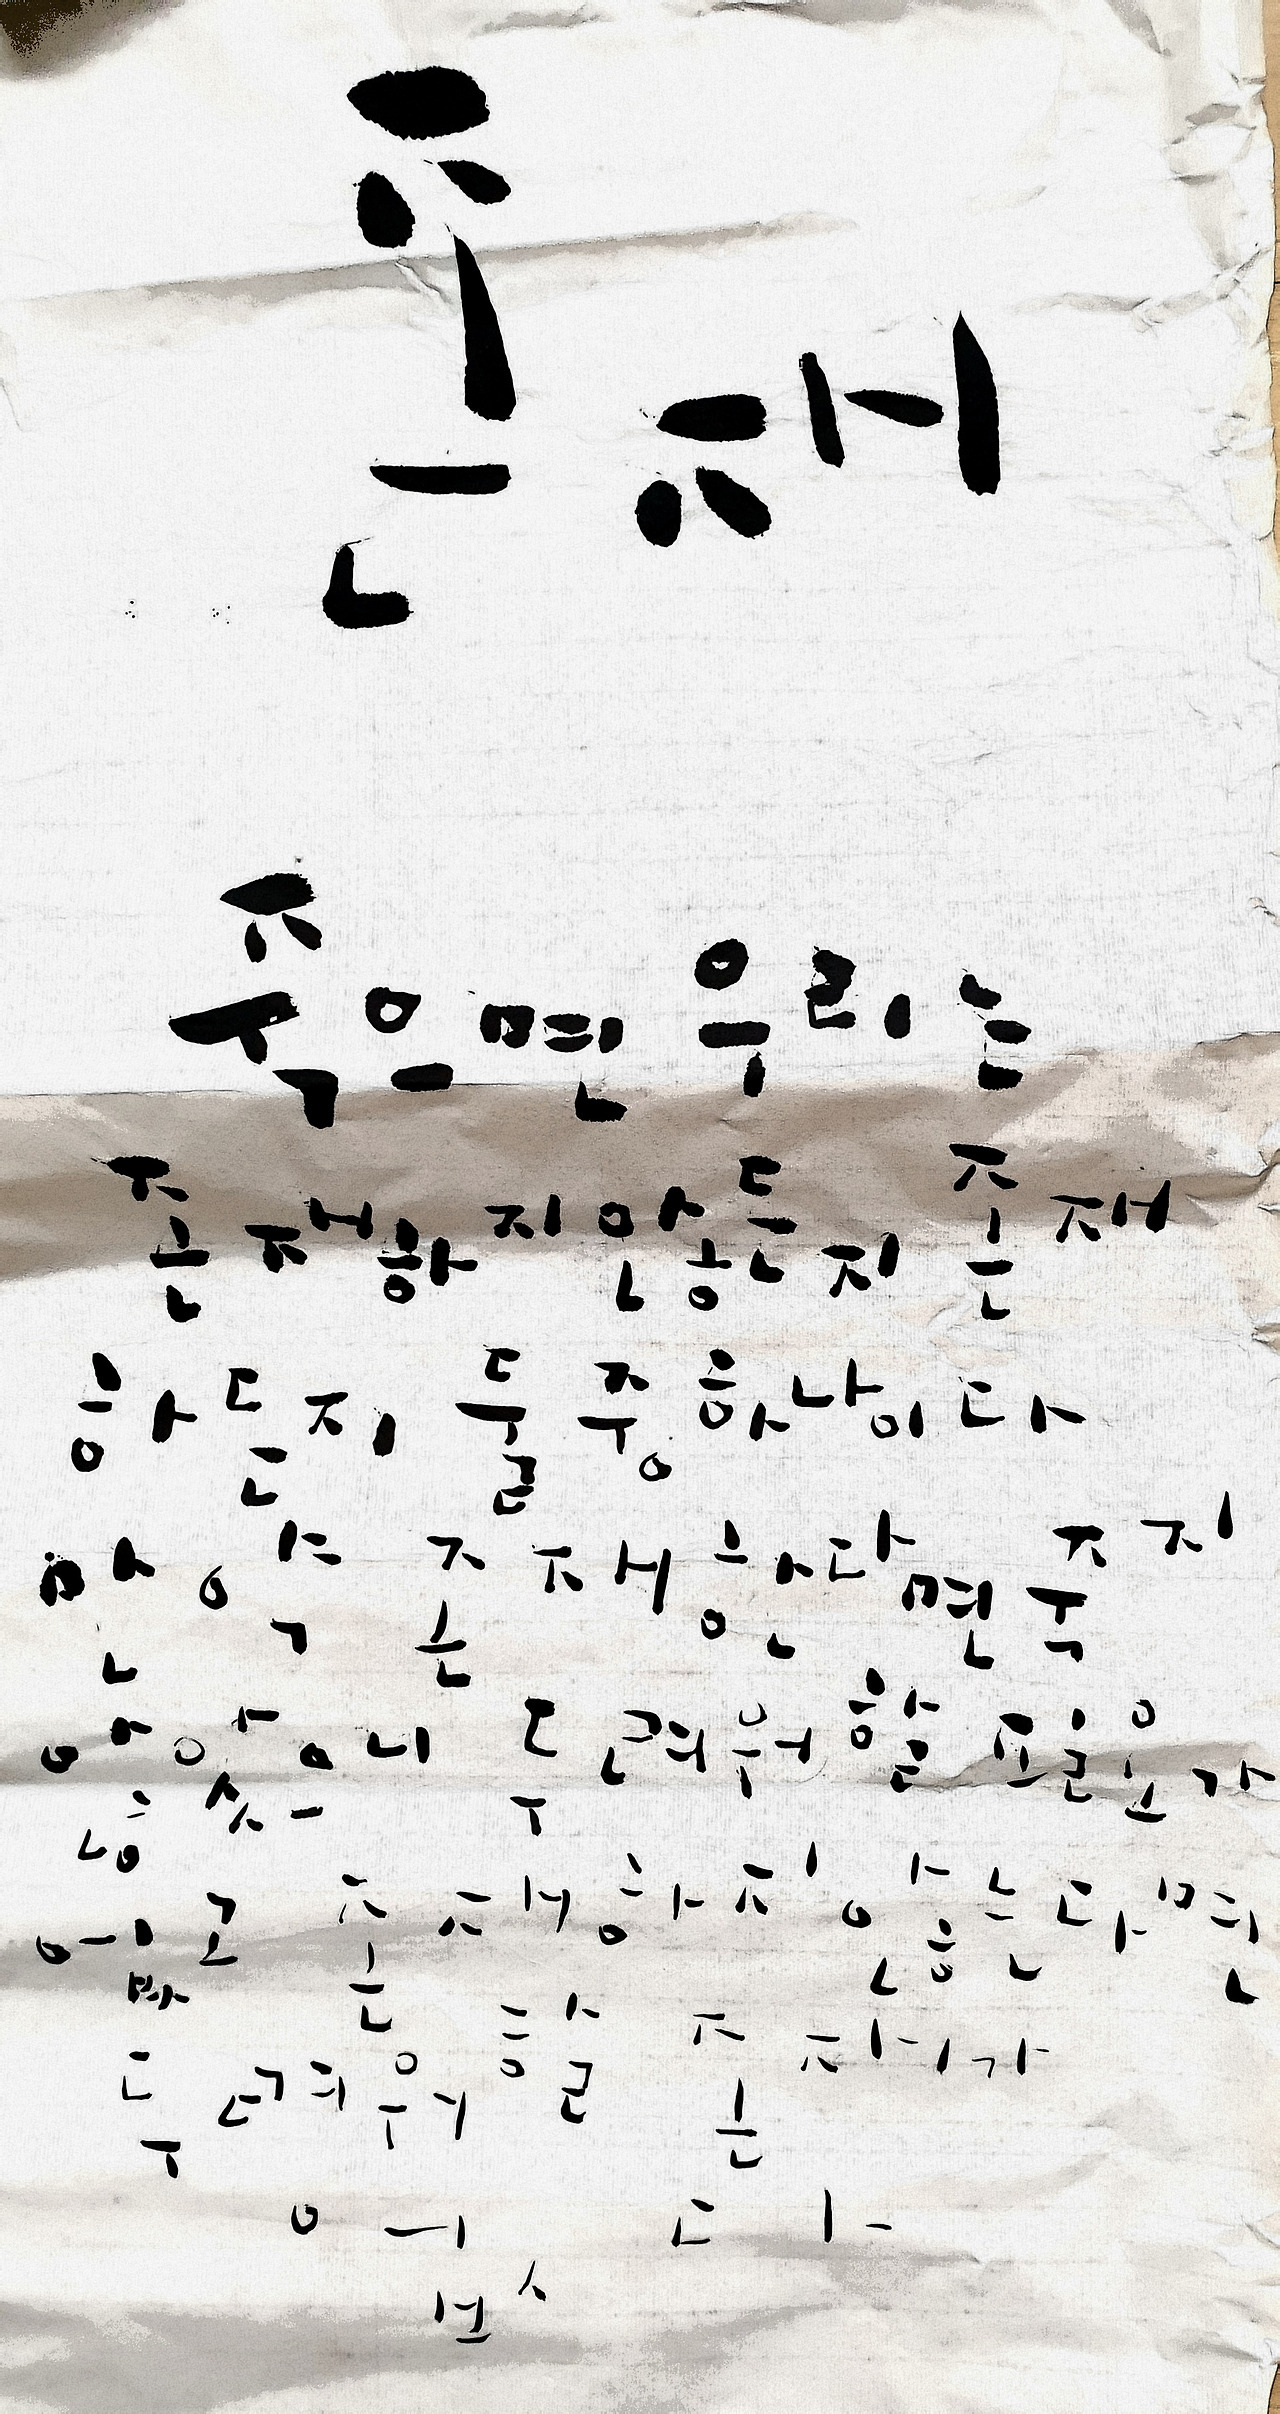 존재
죽으면 우리는
존재하지않든지 존재
하든지 둘 중 하나이다
만약 존재한다면 죽지
않았으니 두려워할 필요가
없고 존재하지 않는다면
두려워할 존재가
없다